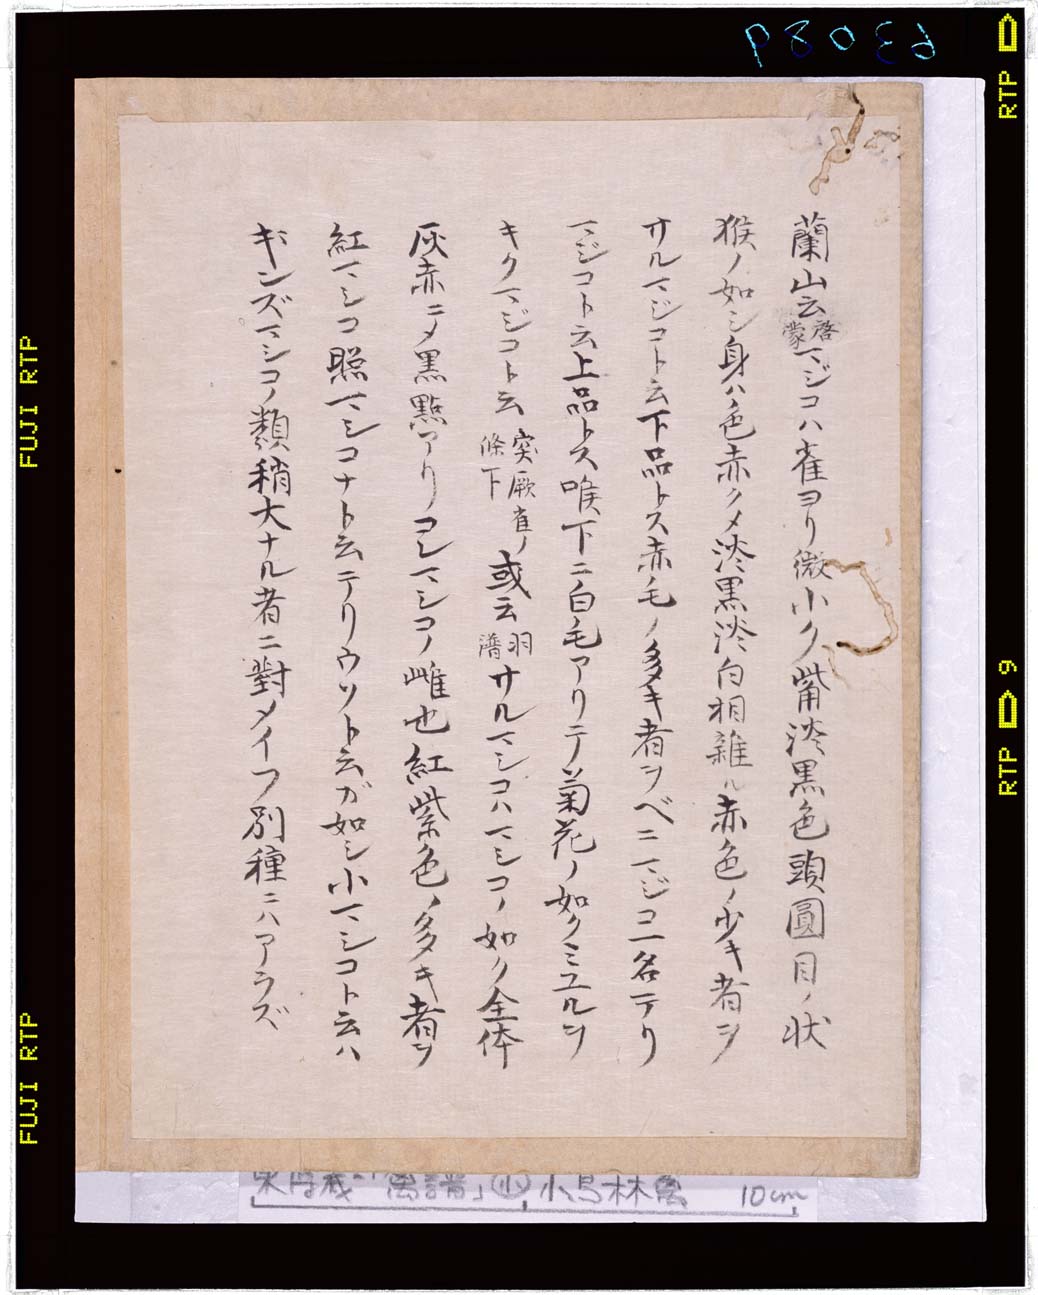 蘭山云啓蒙マジコハ雀ヨリ微小ク觜淡黒色頭圓目ノ状
猴ノ如シ身ハ色赤クメ淡黒淡白相雜ル赤色ノ少キ者ヲ
サルマジコト云下品トス赤毛ノ多キ者ヲベニマジコ一名テリ
マジコト云上品トス喉下ニ白毛アリテ菊花ノ如クミユルヲ
キクマジコト云突厥雀ノ條下或云羽譜サルマシコハマシコノ如ク全体
灰赤ニメ黒點アリコレマシコノ雌也紅紫色ノ多キ者ヲ
紅マシコ照マシコナト云テリウソト云ガ如シ小マシコト云ハ
ギンズマシコノ類稍大ナル者ニ對メイフ別種ニハアラズ
FUJI RTP
FUJI RTP
RTP
RTP 9
「禽譜」小 小鳥林禽 10cm